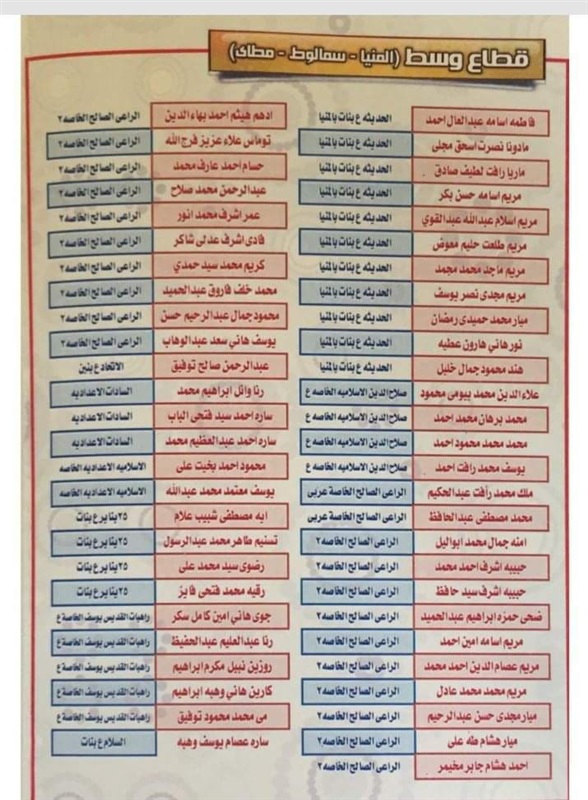 قطاع وسط (المنيا - سمالوط - مطاى)
فاطمه اسامه عبدالعال احمد الحديثه ع بنات بالمنيا
مادونا نصرت اسحق مجلى الحديثه ع بنات بالمنيا
ماريا رافت لطيف صادق الحديثه ع بنات بالمنيا
مريم اسامه حسن بكر الحديثه ع بنات بالمنيا
مريم اسلام عبدالله عبدالقوي الحديثه ع بنات بالمنيا
مريم طلعت حليم معوض الحديثه ع بنات بالمنيا
مريم ماجد محمد محمد الحديثه ع بنات بالمنيا
مريم مجدى نصر يوسف الحديثه ع بنات بالمنيا
ميار محمد حميدى رمضان الحديثه ع بنات بالمنيا
نور هاني هارون عطيه الحديثه ع بنات بالمنيا
هند محمود جمال خليل الحديثه ع بنات بالمنيا
علاء الدين محمد بيومى محمود صلاح الدين الاسلاميه الخاصه ع
محمد برهان محمد احمد صلاح الدين الاسلاميه الخاصه ع
محمد محمد محمود احمد صلاح الدين الاسلاميه الخاصه ع
يوسف محمد رافت احمد صلاح الدين الاسلاميه الخاصه ع
ملك محمد رأفت عبدالحكيم الراعى الصالح الخاصة عربى
محمد مصطفى عبدالحافظ الراعى الصالح الخاصة عربى
امنه جمال محمد ابوالليل الراعى الصالح الخاصه ٢
حبيبه اشرف احمد محمد الراعى الصالح الخاصه ٢
حبيبه اشرف سيد حافظ الراعى الصالح الخاصه ٢
ضحى حمزه ابراهيم عبدالحميد الراعى الصالح الخاصه ٢
مريم اسامه امين احمد الراعى الصالح الخاصه ٢
مريم عصام الدين احمد محمد الراعى الصالح الخاصه ٢
مريم محمد محمد عادل الراعى الصالح الخاصه ٢
ميار مجدى حسن عبدالرحيم الراعى الصالح الخاصه ٢
ميار هشام طه على الراعى الصالح الخاصه ٢
احمد هشام جابر مخيمر الراعى الصالح الخاصه ٢
ادهم هيثم احمد بهاء الدين الراعى الصالح الخاصه ٢
توماس علاء عزيز فرج الله الراعى الصالح الخاصه ٢
حسام احمد عارف محمد الراعى الصالح الخاصه ٢
عبدالرحمن محمد صلاح الراعى الصالح الخاصه ٢
عمر اشرف محمد انور الراعى الصالح الخاصه ٢
فادى اشرف عدلى شاكر الراعى الصالح الخاصه ٢
كريم محمد سيد حمدي الراعى الصالح الخاصه ٢
محمد خلف فاروق عبدالحميد الراعى الصالح الخاصه ٢
محمود جمال عبدالرحيم حسن الراعى الصالح الخاصه ٢
يوسف هاني سعد عبدالوهاب الراعى الصالح الخاصه ٢
عبدالرحمن صالح توفيق الاتحاد ع بنين
رنا وائل ابراهيم محمد السادات الاعداديه
ساره احمد سيد فتحى الباب السادات الاعداديه
ساره احمد عبدالعظيم محمد السادات الاعداديه
محمود احمد بخيت على الاسلاميه الاعداديه الخاصه
يوسف معتمد محمد عبدالله الاسلاميه الاعداديه الخاصه
ايه مصطفى شبيب علام ٢٥ يناير ع بنات
تسنيم طاهر محمد عبدالرسول ٢٥ يناير ع بنات
رضوى سيد محمد على ٢٥ يناير ع بنات
رقيه محمد فتحى فايز ٢٥ يناير ع بنات
جوى هاني امين كامل سكر راهبات القديس يوسف الخاصة ع
رنا عبدالعليم عبدالحفيظ راهبات القديس يوسف الخاصة ع
روزين نبيل مكرم ابراهيم راهبات القديس يوسف الخاصة ع
كارين هاني وهبه ابراهيم راهبات القديس يوسف الخاصة ع
مى محمد محمود توفيق راهبات القديس يوسف الخاصة ع
ساره عصام يوسف وهبه السلام ع بنات